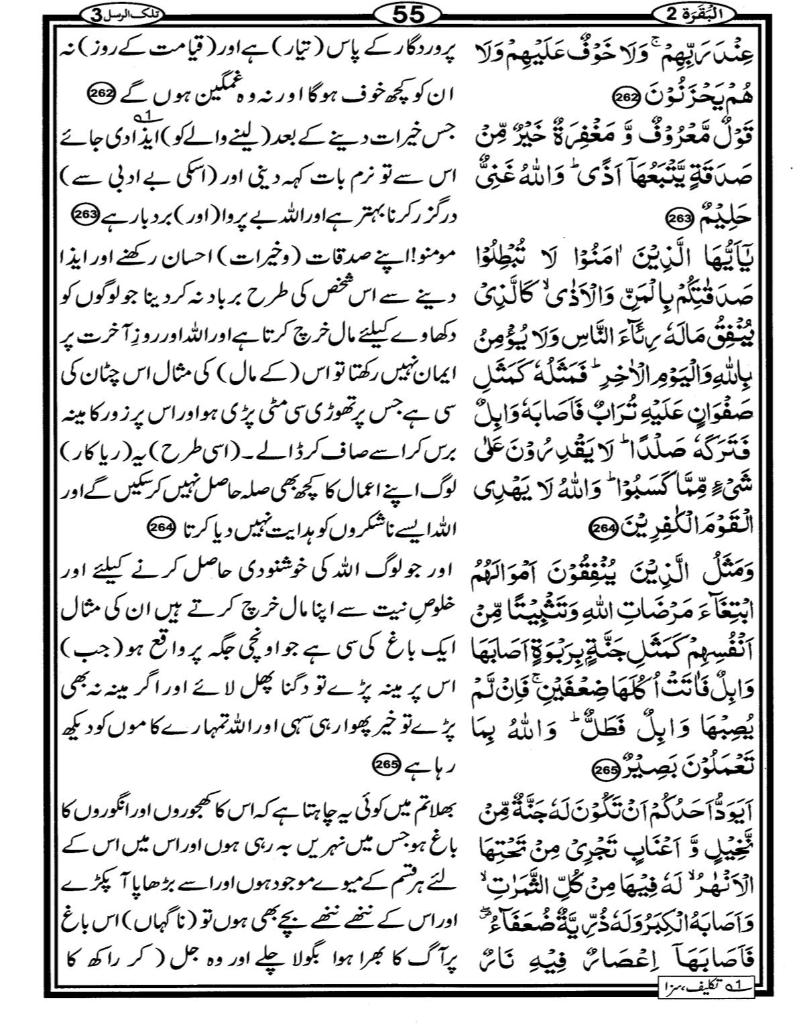 البقرة 2
55
تلك الرسل 3
عِنْدَ رَبِّهِمْ ۚ وَلَا خَوْفٌ عَلَيْهِمْ وَلَا
هُمْ يَحْزَنُوْنَ 262
قَوْلٌ مَّعْرُوْفٌ وَّ مَغْفِرَةٌ خَيْرٌ مِّنْ
صَدَقَةٍ يَّتْبَعُهَآ اَذًى ؕ وَاللّٰهُ غَنِىٌّ
حَلِيْمٌ 263
يٰۤاَيُّهَا الَّذِيْنَ اٰمَنُوْا لَا تُبْطِلُوْا
صَدَقٰتِكُمْ بِالْمَنِّ وَالْاَذٰى ۙ كَالَّذِىْ
يُنْفِقُ مَالَهٗ رِئَآءَ النَّاسِ وَلَا يُؤْمِنُ
بِاللّٰهِ وَالْيَوْمِ الْاٰخِرِ ؕ فَمَثَلُهٗ كَمَثَلِ
صَفْوَانٍ عَلَيْهِ تُرَابٌ فَاَصَابَهٗ وَابِلٌ
فَتَرَكَهٗ صَلْدًا ؕ لَا يَقْدِرُوْنَ عَلٰى
شَىْءٍ مِّمَّا كَسَبُوْا ؕ وَاللّٰهُ لَا يَهْدِى
الْقَوْمَ الْكٰفِرِيْنَ 264
وَمَثَلُ الَّذِيْنَ يُنْفِقُوْنَ اَمْوَالَهُمُ
ابْتِغَآءَ مَرْضَاتِ اللّٰهِ وَتَثْبِيْتًا مِّنْ
اَنْفُسِهِمْ كَمَثَلِ جَنَّةٍۢ بِرَبْوَةٍ اَصَابَهَا
وَابِلٌ فَاٰتَتْ اُكُلَهَا ضِعْفَيْنِ ۚ فَاِنْ لَّمْ
يُصِبْهَا وَابِلٌ فَطَلٌّ ؕ وَاللّٰهُ بِمَا
تَعْمَلُوْنَ بَصِيْرٌ 265
اَيَوَدُّ اَحَدُكُمْ اَنْ تَكُوْنَ لَهٗ جَنَّةٌ مِّنْ
نَّخِيْلٍ وَّ اَعْنَابٍ تَجْرِىْ مِنْ تَحْتِهَا
الْاَنْهٰرُ ۙ لَهٗ فِيْهَا مِنْ كُلِّ الثَّمَرٰتِ ۙ
وَاَصَابَهُ الْكِبَرُ وَلَهٗ ذُرِّيَّةٌ ضُعَفَآءُ ۖ
فَاَصَابَهَآ اِعْصَارٌ فِيْهِ نَارٌ
پروردگار کے پاس (تیار) ہے اور (قیامت کے روز) نہ
ان کو کچھ خوف ہوگا اور نہ وہ غمگین ہوں گے 262
جس خیرات دینے کے بعد (لینے والے کو) ایذا1 دی جائے
اس سے تو نرم بات کہہ دینی اور (اسکی بے ادبی سے)
درگزر کرنا بہتر ہے اور اللہ بے پروا (اور) بردبار ہے 263
مومنو! اپنے صدقات (وخیرات) احسان رکھنے اور ایذا
دینے سے اس شخص کی طرح برباد نہ کر دینا جو لوگوں کو
دکھاوے کیلئے مال خرچ کرتا ہے اور اللہ اور روزِ آخرت پر
ایمان نہیں رکھتا تو اس (کے مال) کی مثال اس چٹان کی
سی ہے جس پر تھوڑی سی مٹی پڑی ہو اور اس پر زور کا مینہ
برس کر اسے صاف کر ڈالے۔ (اسی طرح) یہ (ریاکار)
لوگ اپنے اعمال کا کچھ بھی صلہ حاصل نہیں کر سکیں گے اور
اللہ ایسے ناشکروں کو ہدایت نہیں دیا کرتا 264
اور جو لوگ اللہ کی خوشنودی حاصل کرنے کیلئے اور
خلوصِ نیت سے اپنا مال خرچ کرتے ہیں ان کی مثال
ایک باغ کی سی ہے جو اونچی جگہ پر واقع ہو (جب)
اس پر مینہ پڑے تو دگنا پھل لائے اور اگر مینہ نہ بھی
پڑے تو خیر پھوار ہی سہی اور اللہ تمہارے کاموں کو دیکھ
رہا ہے 265
بھلا تم میں کوئی یہ چاہتا ہے کہ اس کا کھجوروں اور انگوروں کا
باغ ہو جس میں نہریں بہ رہی ہوں اور اس میں اس کے
لئے ہر قسم کے میوے موجود ہوں اور اسے بڑھاپا آ پکڑے
اور اس کے ننھے ننھے بچے بھی ہوں تو (ناگہاں) اس باغ
پر آگ کا بھرا ہوا بگولا چلے اور وہ جل (کر راکھ کا
1 تکلیف، سزا